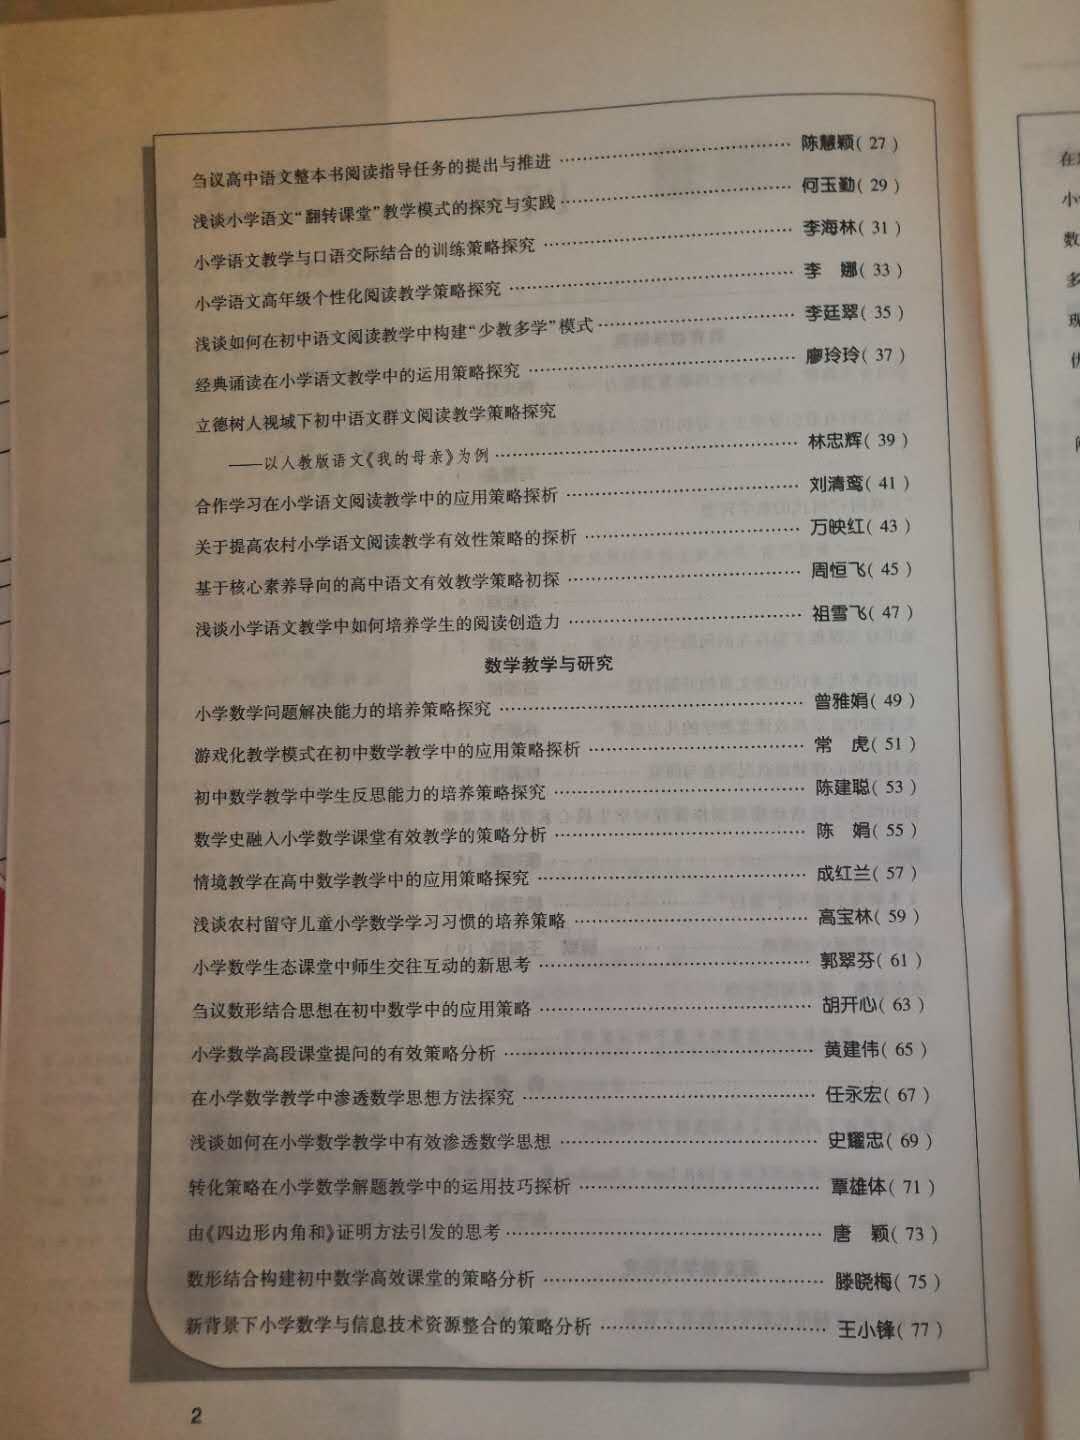 刍议高中语文整本书阅读指导任务的提出与推进 …… 陈慧颖( 27 )
浅谈小学语文“翻转课堂”教学模式的探究与实践 …… 何玉勤( 29 )
小学语文教学与口语交际结合的训练策略探究 …… 李海林( 31 )
小学语文高年级个性化阅读教学策略探究 …… 李　娜( 33 )
浅谈如何在初中语文阅读教学中构建“少教多学”模式 …… 李廷翠( 35 )
经典诵读在小学语文教学中的运用策略探究 …… 廖玲玲( 37 )
立德树人视域下初中语文群文阅读教学策略探究
——以人教版语文《我的母亲》为例 …… 林忠辉( 39 )
合作学习在小学语文阅读教学中的应用策略探析 …… 刘清鸾( 41 )
关于提高农村小学语文阅读教学有效性策略的探析 …… 万映红( 43 )
基于核心素养导向的高中语文有效教学策略初探 …… 周恒飞( 45 )
浅谈小学语文教学中如何培养学生的阅读创造力 …… 祖雪飞( 47 )
数学教学与研究
小学数学问题解决能力的培养策略探究 …… 曾雅娟( 49 )
游戏化教学模式在初中数学教学中的应用策略探析 …… 常　虎( 51 )
初中数学教学中学生反思能力的培养策略探究 …… 陈建聪( 53 )
数学史融入小学数学课堂有效教学的策略分析 …… 陈　娟( 55 )
情境教学在高中数学教学中的应用策略探究 …… 成红兰( 57 )
浅谈农村留守儿童小学数学学习习惯的培养策略 …… 高宝林( 59 )
小学数学生态课堂中师生交往互动的新思考 …… 郭翠芬( 61 )
刍议数形结合思想在初中数学中的应用策略 …… 胡开心( 63 )
小学数学高段课堂提问的有效策略分析 …… 黄建伟( 65 )
在小学数学教学中渗透数学思想方法探究 …… 任永宏( 67 )
浅谈如何在小学数学教学中有效渗透数学思想 …… 史耀忠( 69 )
转化策略在小学数学解题教学中的运用技巧探析 …… 覃雄体( 71 )
由《四边形内角和》证明方法引发的思考 …… 唐　颖( 73 )
数形结合构建初中数学高效课堂的策略分析 …… 滕晓梅( 75 )
新背景下小学数学与信息技术资源整合的策略分析 …… 王小锋( 77 )
2